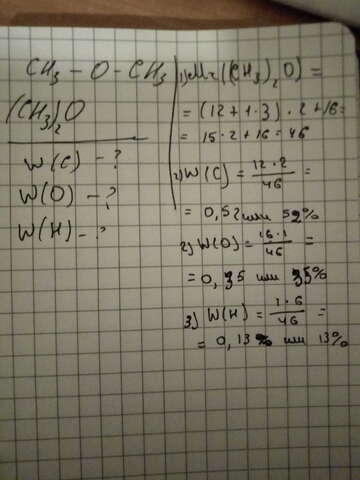 CH₃ - O - CH₃
(CH₃)₂O
W(C) - ?
W(O) - ?
W(H) - ?
1) Mr((CH₃)₂O) =
= (12 + 1·3)·2 + 16 =
= 15·2 + 16 = 46
2) W(C) = 12·2/46 =
= 0,52 или 52%
2) W(O) = 16·1/46 =
= 0,35 или 35%
3) W(H) = 1·6/46 =
= 0,13% или 13%